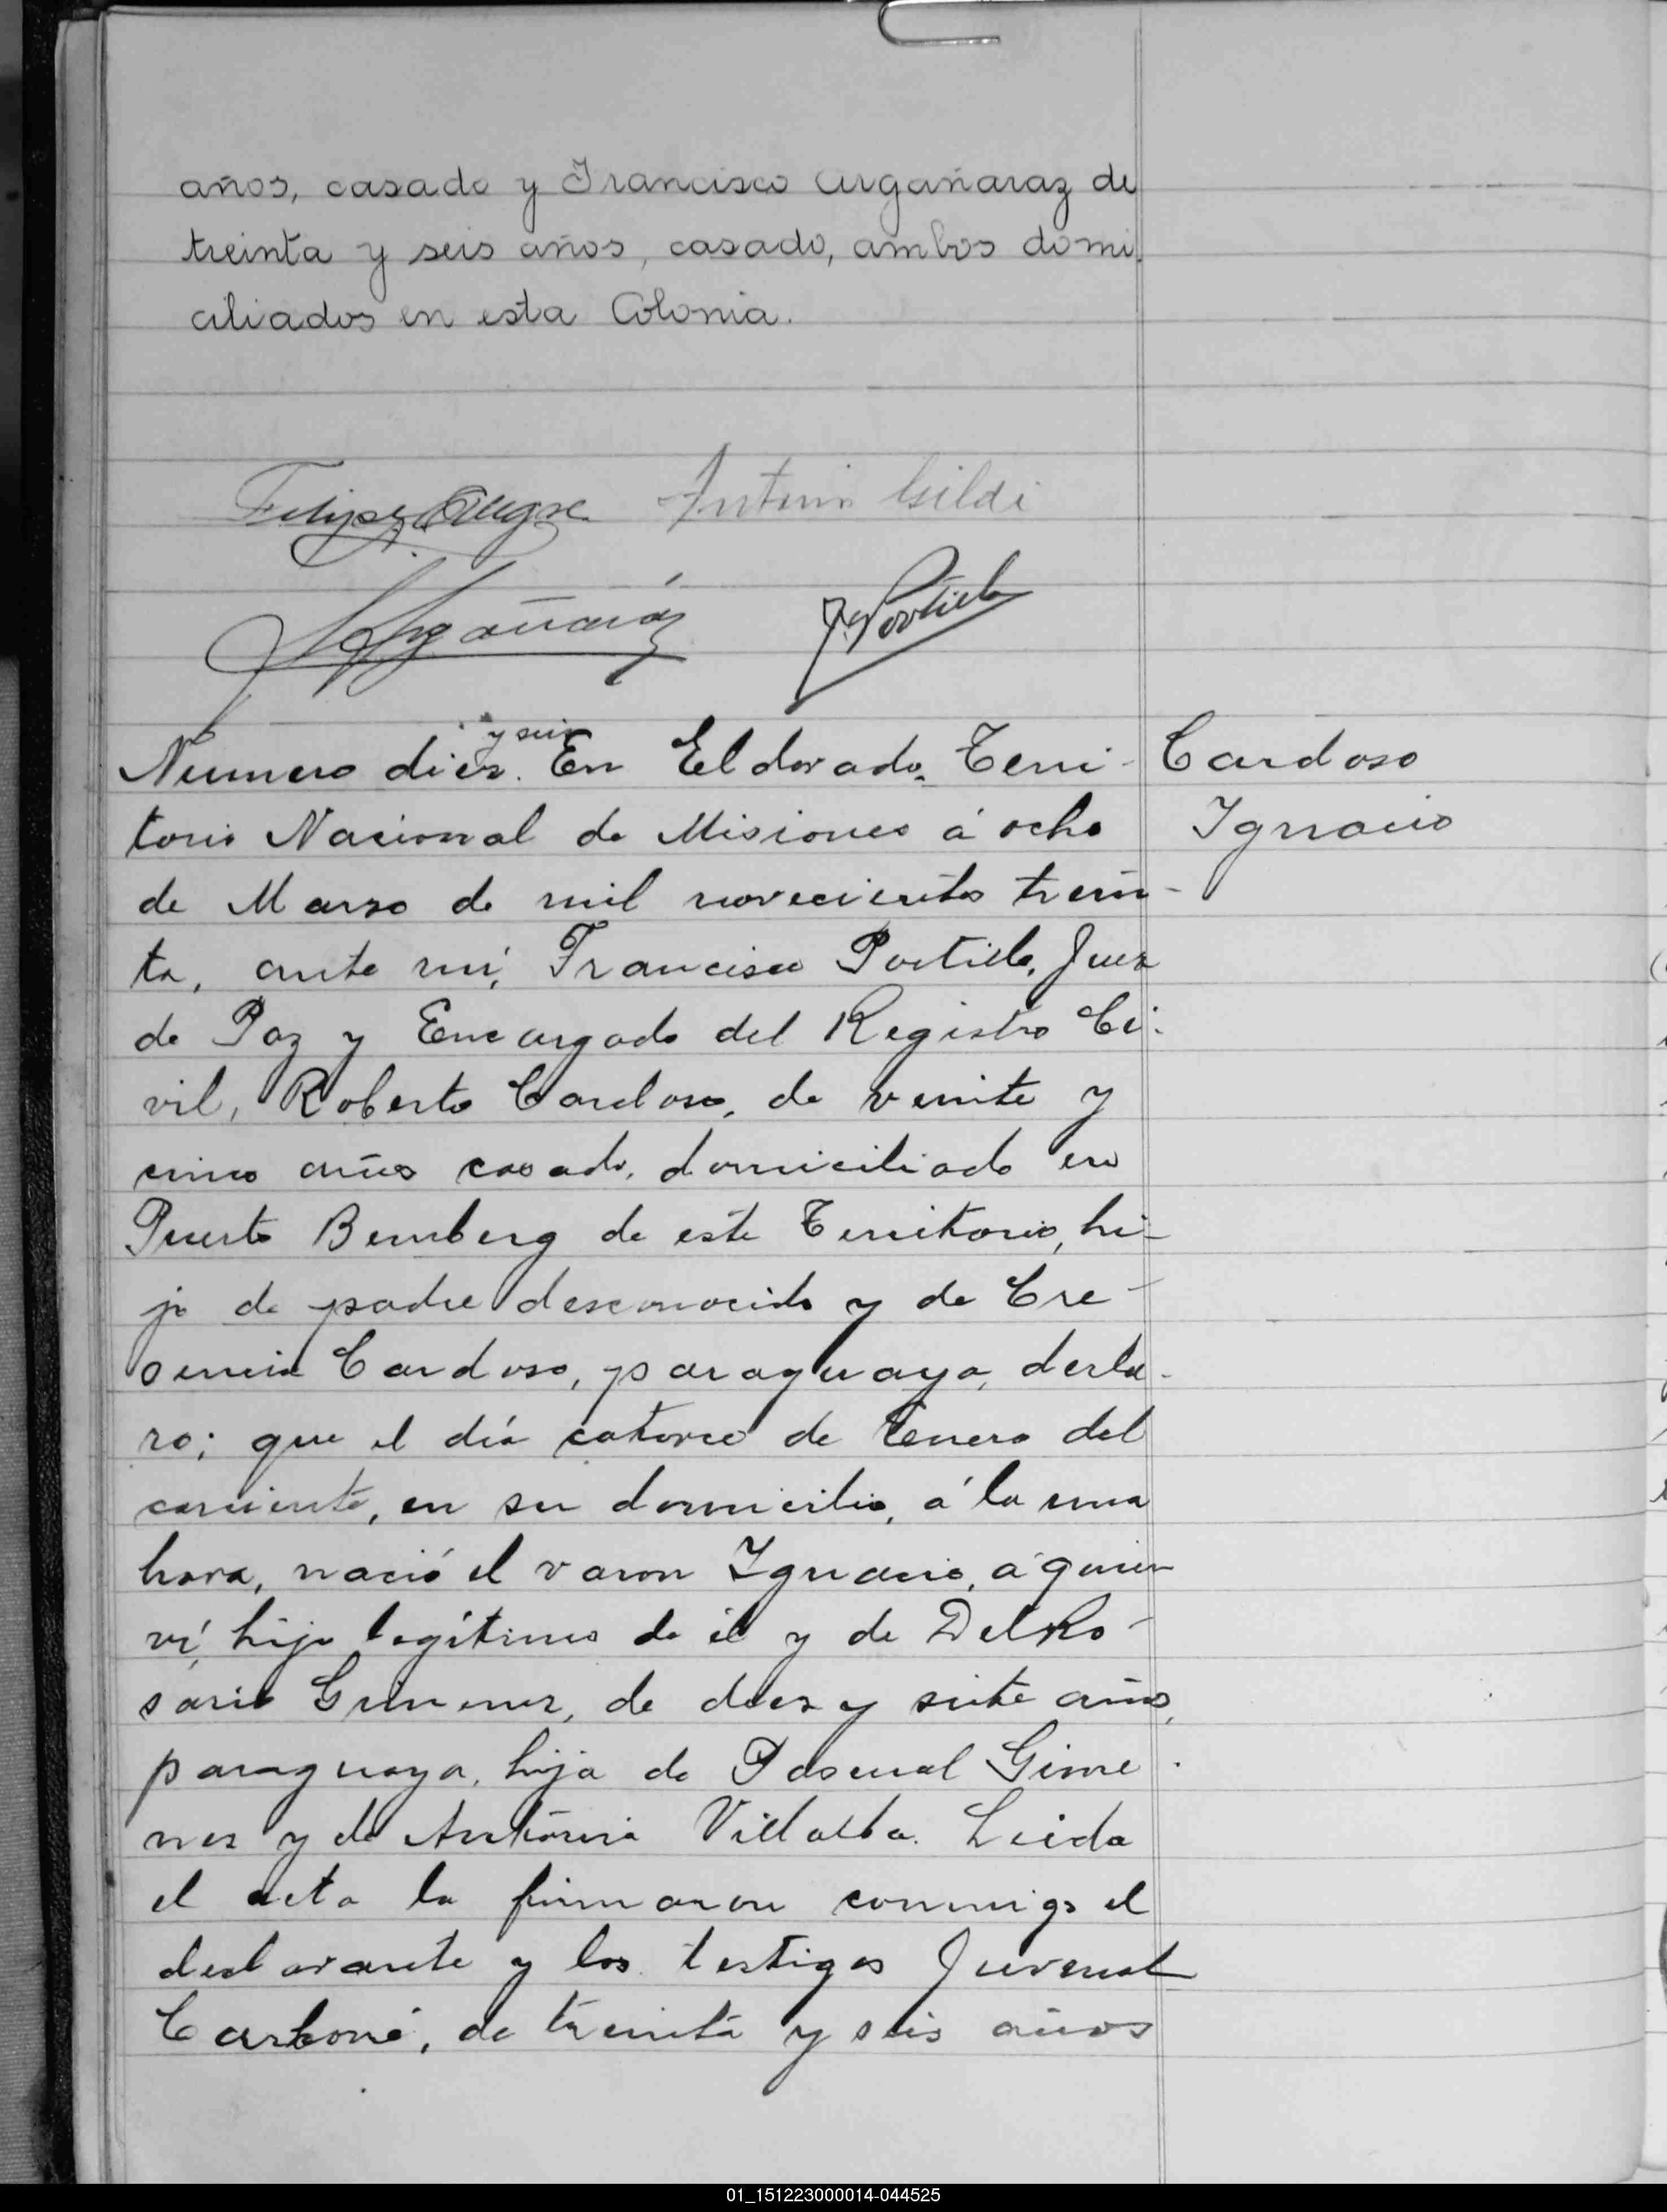 años, casado y Francisco Argañaraz de
treinta y seis años, casado, ambos domi
ciliados en esta Colonia.
Antonio Gildi
Argañaráz
F. Portielo
y seis
Numero diez. En Eldorado, Terri-
Cardoso
torio Nacional de Misiones á ocho
Ignacio
de Marzo de mil novecientos trein-
ta, ante mí, Francisco Portielo, Juez
de Paz y Encargado del Registro Ci-
vil, Roberto Cardoso, de veinte y
cinco años casado, domiciliado en
Puerto Bemberg de este Territorio, hi-
jo de padre desconocido y de Cre-
sencia Cardoso, paraguayo, decla-
ro; que el día catorce de Enero del
corriente, en su domicilio, á la una
hora, nació el varon Ignacio, á quien
ví, hijo legítimo de él y de Del Ro-
sario Gimenez, de diez y siete años,
paraguaya, hija de Pascual Gime-
nez y de Antonia Villalba. Leida
el acta la firmaron conmigo el
declarante y los testigos Juvenal
Carboné, de treinta y seis años
01_151223000014-044525